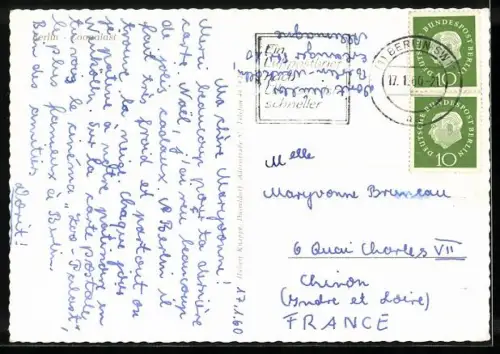 Berlin - Zoopalast
17.1.60
Ma chère Maryvonne!
Merci beaucoup pour ta dernière
carte. Noël, j'ai eu beaucoup
de jolis cadeaux. A Berlin il
fait très froid et partout on
trouve la neige. Chaque jour
je peux à notre patinoire en
Neukölln. Sur la carte postale
tu vois le cinéma "Zoo-Palast",
le plus fameux à Berlin.
Bien des amitiés
Dorit!
Berlin
Allemagne
schneller
(1) BERLIN SW
17.1.60
DEUTSCHE BUNDESPOST BERLIN
10
DEUTSCHE BUNDESPOST BERLIN
10
Melle
Maryvonne Bruneau
6 Quai Charles VII
Chinon
(Indre et Loire)
FRANCE